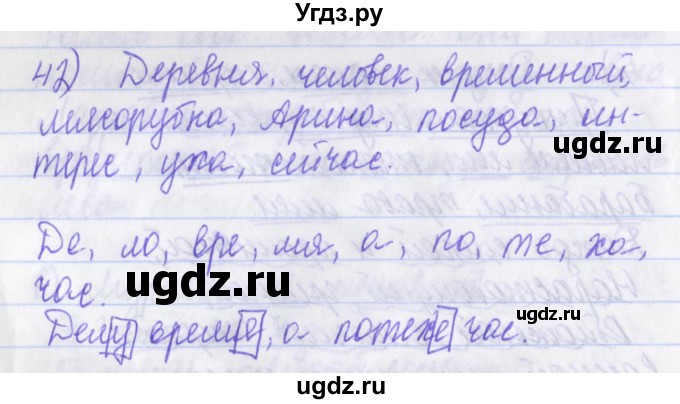 Угдз.ру
42) Деревня, человек, временный,
мясорубка, Арина, посуда, ин-
терес, уха, сейчас.
Де, ло, вре, мя, а, по, те, ха,
час.
Делу время, а потехе час.
ugdz.ru
ugdz.ru
ugdz.ru
ugdz.ru
ugdz.ru